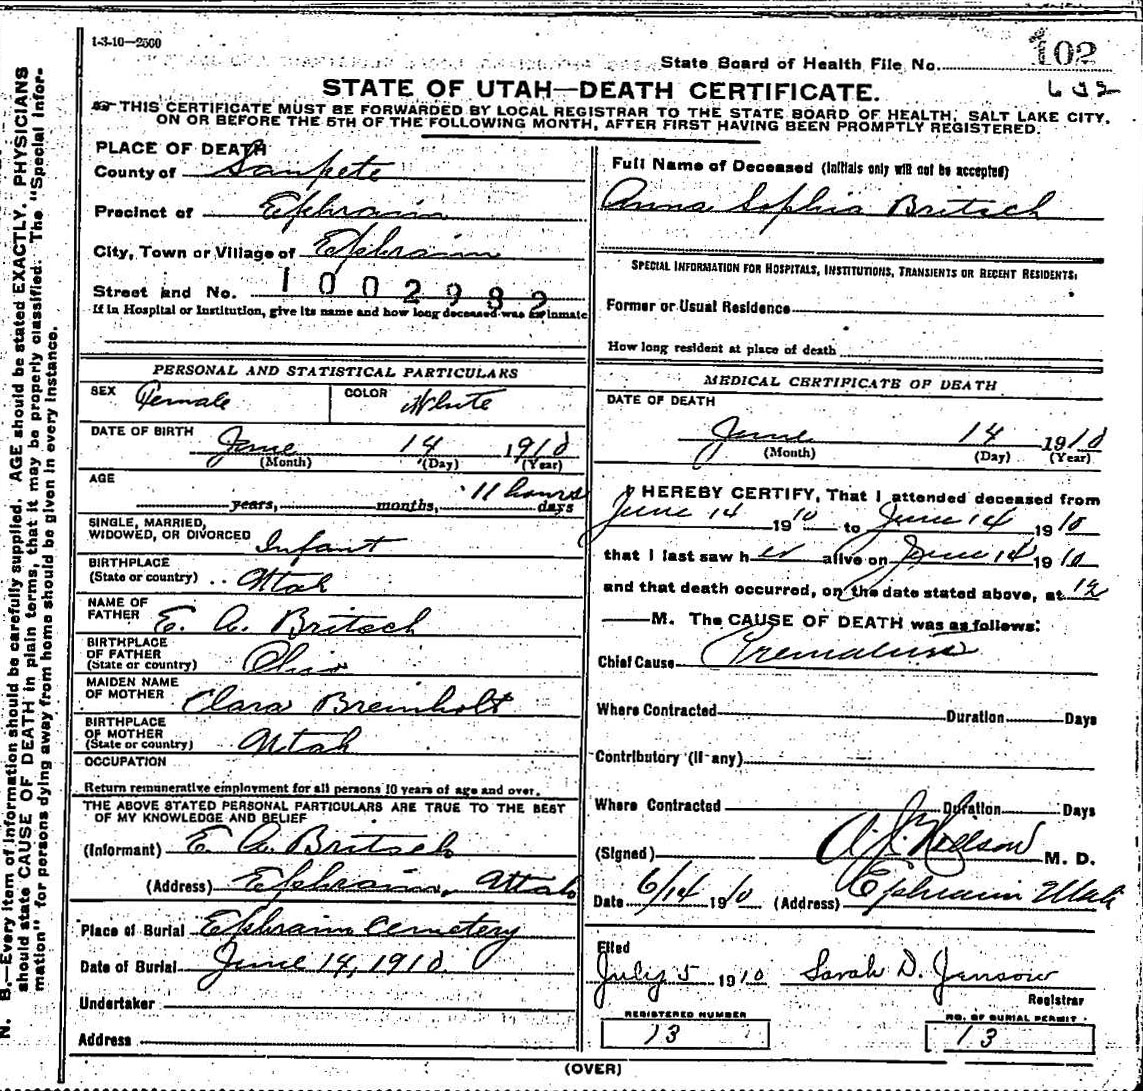 1-3-10—2500
State Board of Health File No. 102
STATE OF UTAH—DEATH CERTIFICATE.
THIS CERTIFICATE MUST BE FORWARDED BY LOCAL REGISTRAR TO THE STATE BOARD OF HEALTH, SALT LAKE CITY,
ON OR BEFORE THE 5TH OF THE FOLLOWING MONTH, AFTER FIRST HAVING BEEN PROMPTLY REGISTERED.
PLACE OF DEATH
County of Sanpete
Precinct of Ephraim
City, Town or Village of Ephraim
Street and No. 1002982
If in Hospital or Institution, give its name and how long deceased was an inmate
Full Name of Deceased (Initials only will not be accepted)
Anna Sophia Britsch
SPECIAL INFORMATION FOR HOSPITALS, INSTITUTIONS, TRANSIENTS OR RECENT RESIDENTS:
Former or Usual Residence
How long resident at place of death
PERSONAL AND STATISTICAL PARTICULARS
SEX Female COLOR White
DATE OF BIRTH
June 14 1910
(Month) (Day) (Year)
AGE 11 hours
years, months, days
SINGLE, MARRIED,
WIDOWED, OR DIVORCED Infant
BIRTHPLACE
(State or country) Utah
NAME OF
FATHER E. A. Britsch
BIRTHPLACE
OF FATHER
(State or country) Ohio
MAIDEN NAME
OF MOTHER Clara Breinholt
BIRTHPLACE
OF MOTHER
(State or country) Utah
OCCUPATION
Return remunerative employment for all persons 10 years of age and over.
THE ABOVE STATED PERSONAL PARTICULARS ARE TRUE TO THE BEST
OF MY KNOWLEDGE AND BELIEF
(Informant) E. A. Britsch
(Address) Ephraim, Utah
Place of Burial Ephraim Cemetery
Date of Burial June 14, 1910.
Undertaker
Address
MEDICAL CERTIFICATE OF DEATH
DATE OF DEATH
June 14 1910
(Month) (Day) (Year)
I HEREBY CERTIFY, That I attended deceased from
June 14 1910 to June 14 1910
that I last saw her alive on June 14 1910
and that death occurred, on the date stated above, at 12
M. The CAUSE OF DEATH was as follows:
Chief Cause Premature
Where Contracted Duration Days
Contributory (if any)
Where Contracted Duration Days
(Signed) M. D.
Date 6/14 1910 (Address) Ephraim Utah
Filed
July 5 1910 Sarah D. Jensow
Registrar
REGISTERED NUMBER
13
NO. OF BURIAL PERMIT
13
(OVER)
N. B.—Every item of information should be carefully supplied. AGE should be stated EXACTLY. PHYSICIANS
should state CAUSE OF DEATH in plain terms, that it may be properly classified. The "Special Infor-
mation" for persons dying away from home should be given in every instance.